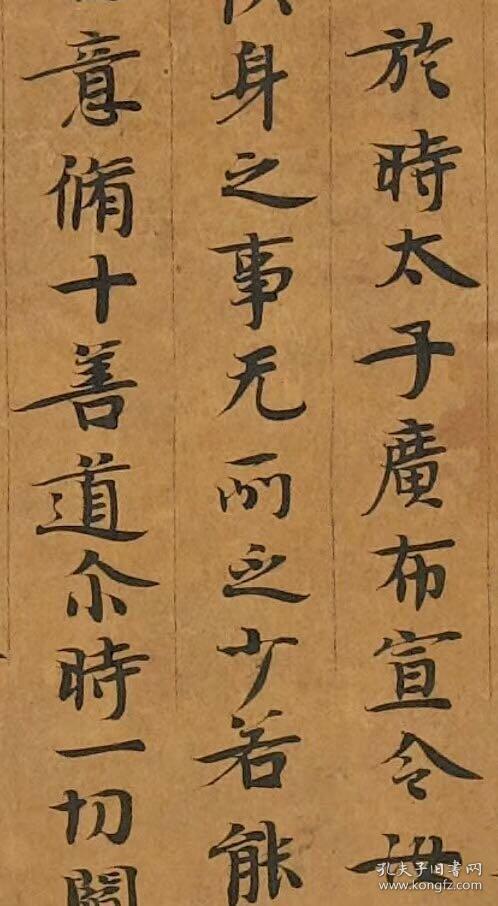 於時太子廣布宣令世
身之事无所乏少若能
意脩十善道尒時一切閻
孔夫子旧书网
www.kongfz.com